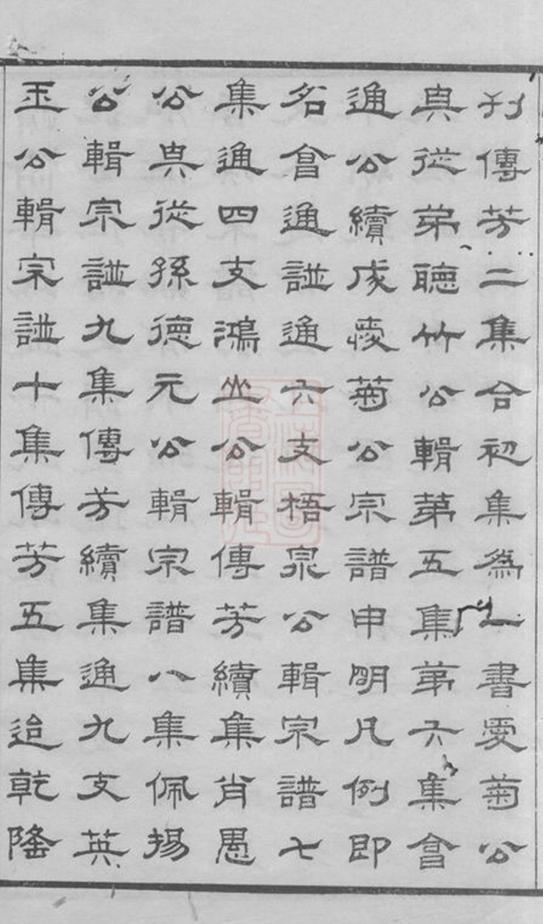 刊傳芳二集合初集為一書愛菊公
真從弟聽竹公輯第五集第六集會
通公續成愛菊公宗譜申明凡例即
名會通譜通六支梧泉公輯宗譜七
集通四支鴻山公輯傳芳續集肖愚
公真從孫德元公輯宗譜八集佩揚
公輯宗譜九集傳芳續集通九支英
玉公輯宗譜十集傳芳五集迨乾隆